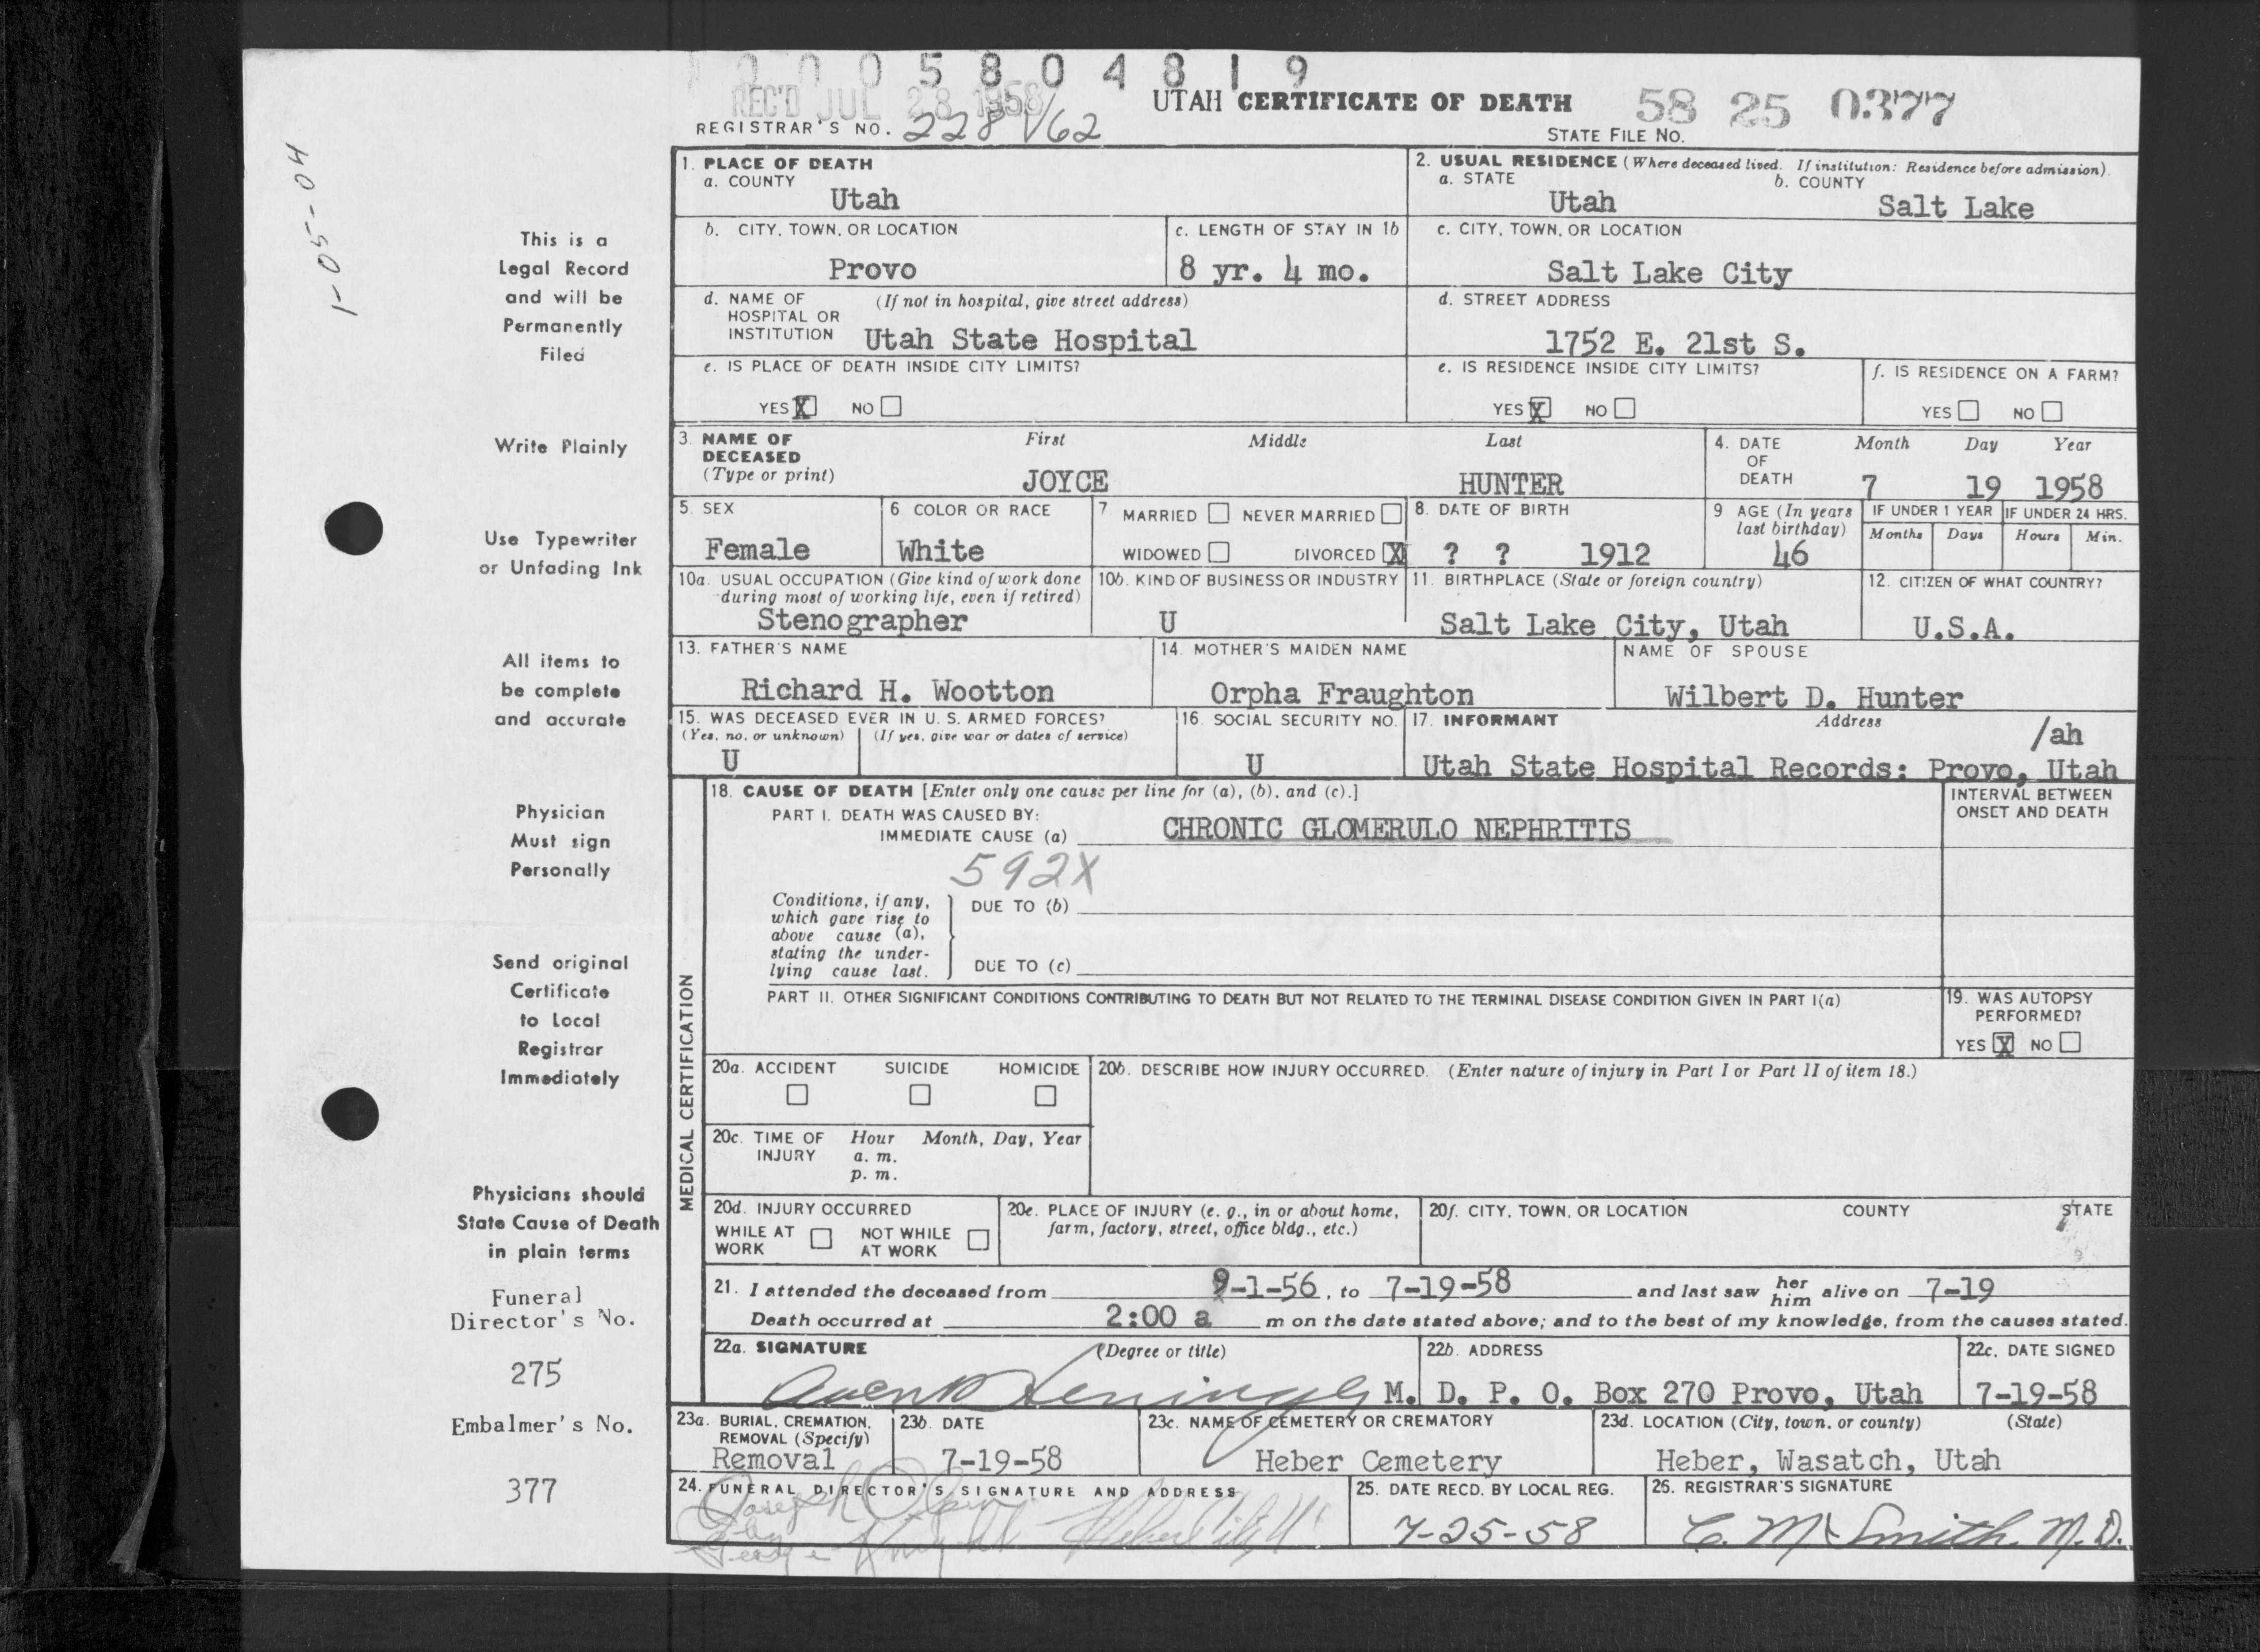 0 0 0 5 8 0 4 8 1 9
REC'D JUL 28 1958
UTAH CERTIFICATE OF DEATH
58 25 0377
REGISTRAR'S NO. 228 162
STATE FILE NO.
1-05-04
This is a
Legal Record
and will be
Permanently
Filed
Write Plainly
Use Typewriter
or Unfading Ink
All items to
be complete
and accurate
Physician
Must sign
Personally
Send original
Certificate
to Local
Registrar
Immediately
Physicians should
State Cause of Death
in plain terms
Funeral
Director's No.
275
Embalmer's No.
377
1. PLACE OF DEATH
a. COUNTY
Utah
2. USUAL RESIDENCE (Where deceased lived. If institution: Residence before admission).
a. STATE
Utah
b. COUNTY
Salt Lake
b. CITY, TOWN, OR LOCATION
Provo
c. LENGTH OF STAY IN 1b
8 yr. 4 mo.
c. CITY, TOWN, OR LOCATION
Salt Lake City
d. NAME OF (If not in hospital, give street address)
HOSPITAL OR
INSTITUTION Utah State Hospital
d. STREET ADDRESS
1752 E. 21st S.
e. IS PLACE OF DEATH INSIDE CITY LIMITS?
YES X NO
e. IS RESIDENCE INSIDE CITY LIMITS?
YES X NO
f. IS RESIDENCE ON A FARM?
YES NO
3. NAME OF First Middle Last
DECEASED
(Type or print) JOYCE HUNTER
4. DATE Month Day Year
OF
DEATH 7 19 1958
5. SEX
Female
6. COLOR OR RACE
White
7. MARRIED NEVER MARRIED
WIDOWED DIVORCED X
8. DATE OF BIRTH
? ? 1912
9 AGE (In years
last birthday)
46
IF UNDER 1 YEAR
Months Days
IF UNDER 24 HRS.
Hours Min.
10a. USUAL OCCUPATION (Give kind of work done
during most of working life, even if retired)
Stenographer
10b. KIND OF BUSINESS OR INDUSTRY
U
11. BIRTHPLACE (State or foreign country)
Salt Lake City, Utah
12. CITIZEN OF WHAT COUNTRY?
U.S.A.
13. FATHER'S NAME
Richard H. Wootton
14. MOTHER'S MAIDEN NAME
Orpha Fraughton
NAME OF SPOUSE
Wilbert D. Hunter
15. WAS DECEASED EVER IN U. S. ARMED FORCES?
(Yes, no, or unknown) (If yes, give war or dates of service)
U
16. SOCIAL SECURITY NO.
U
17. INFORMANT Address
/ah
Utah State Hospital Records: Provo, Utah
MEDICAL CERTIFICATION
18. CAUSE OF DEATH [Enter only one cause per line for (a), (b), and (c).]
PART I. DEATH WAS CAUSED BY:
IMMEDIATE CAUSE (a) CHRONIC GLOMERULO NEPHRITIS
592X
INTERVAL BETWEEN
ONSET AND DEATH
Conditions, if any,
which gave rise to
above cause (a),
stating the under-
lying cause last.
DUE TO (b)
DUE TO (c)
PART II. OTHER SIGNIFICANT CONDITIONS CONTRIBUTING TO DEATH BUT NOT RELATED TO THE TERMINAL DISEASE CONDITION GIVEN IN PART I(a)
19. WAS AUTOPSY
PERFORMED?
YES X NO
20a. ACCIDENT SUICIDE HOMICIDE
20b. DESCRIBE HOW INJURY OCCURRED. (Enter nature of injury in Part I or Part II of item 18.)
20c. TIME OF Hour Month, Day, Year
INJURY a. m.
p. m.
20d. INJURY OCCURRED
WHILE AT WORK NOT WHILE AT WORK
20e. PLACE OF INJURY (e. g., in or about home,
farm, factory, street, office bldg., etc.)
20f. CITY, TOWN, OR LOCATION COUNTY STATE
21. I attended the deceased from 9-1-56, to 7-19-58 and last saw her him alive on 7-19
Death occurred at 2:00 a m on the date stated above; and to the best of my knowledge, from the causes stated.
22a. SIGNATURE (Degree or title)
M. D.
22b. ADDRESS
P. O. Box 270 Provo, Utah
22c. DATE SIGNED
7-19-58
23a. BURIAL, CREMATION,
REMOVAL (Specify)
Removal
23b. DATE
7-19-58
23c. NAME OF CEMETERY OR CREMATORY
Heber Cemetery
23d. LOCATION (City, town, or county) (State)
Heber, Wasatch, Utah
24. FUNERAL DIRECTOR'S SIGNATURE AND ADDRESS
Joseph Olson
by
25. DATE RECD. BY LOCAL REG.
7-25-58
26. REGISTRAR'S SIGNATURE
C. M. Smith. M.D.